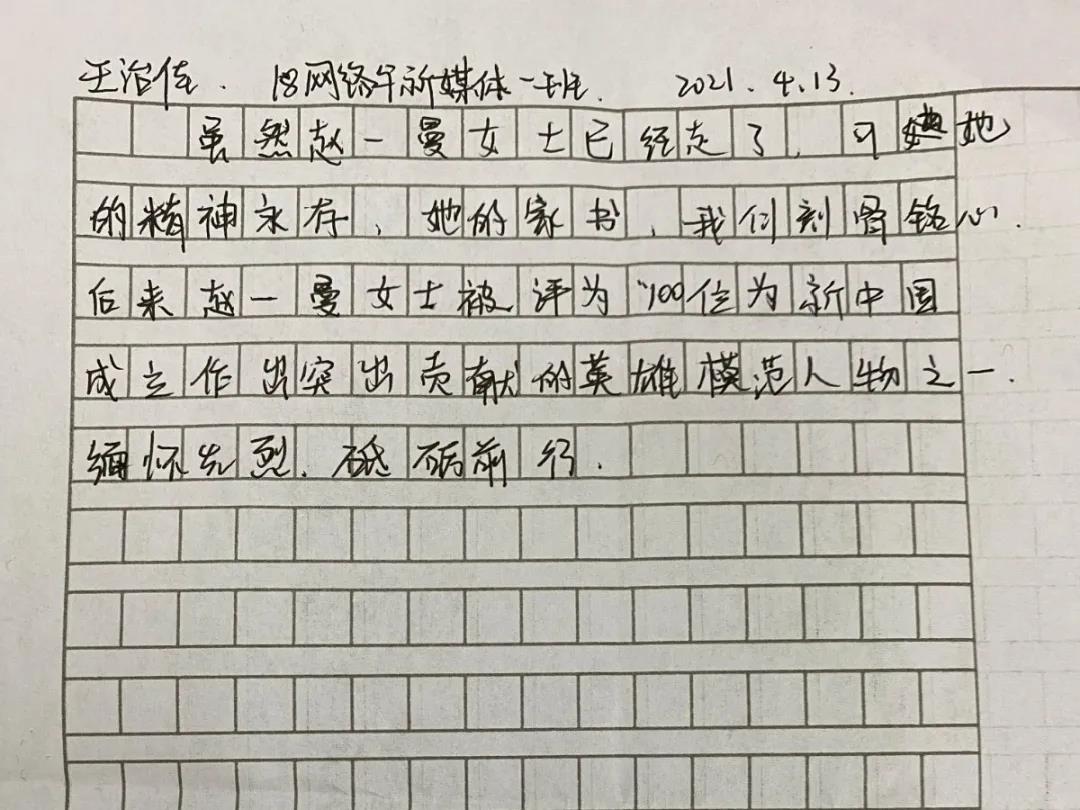 王治佳. 18网络与新媒体一班. 2021.4.13.
虽然赵一曼女士已经走了,可她
的精神永存,她的家书,我们刻骨铭心.
后来赵一曼女士被评为"100位为新中国
成立作出突出贡献的英雄模范人物之一.
缅怀先烈.砥砺前行.